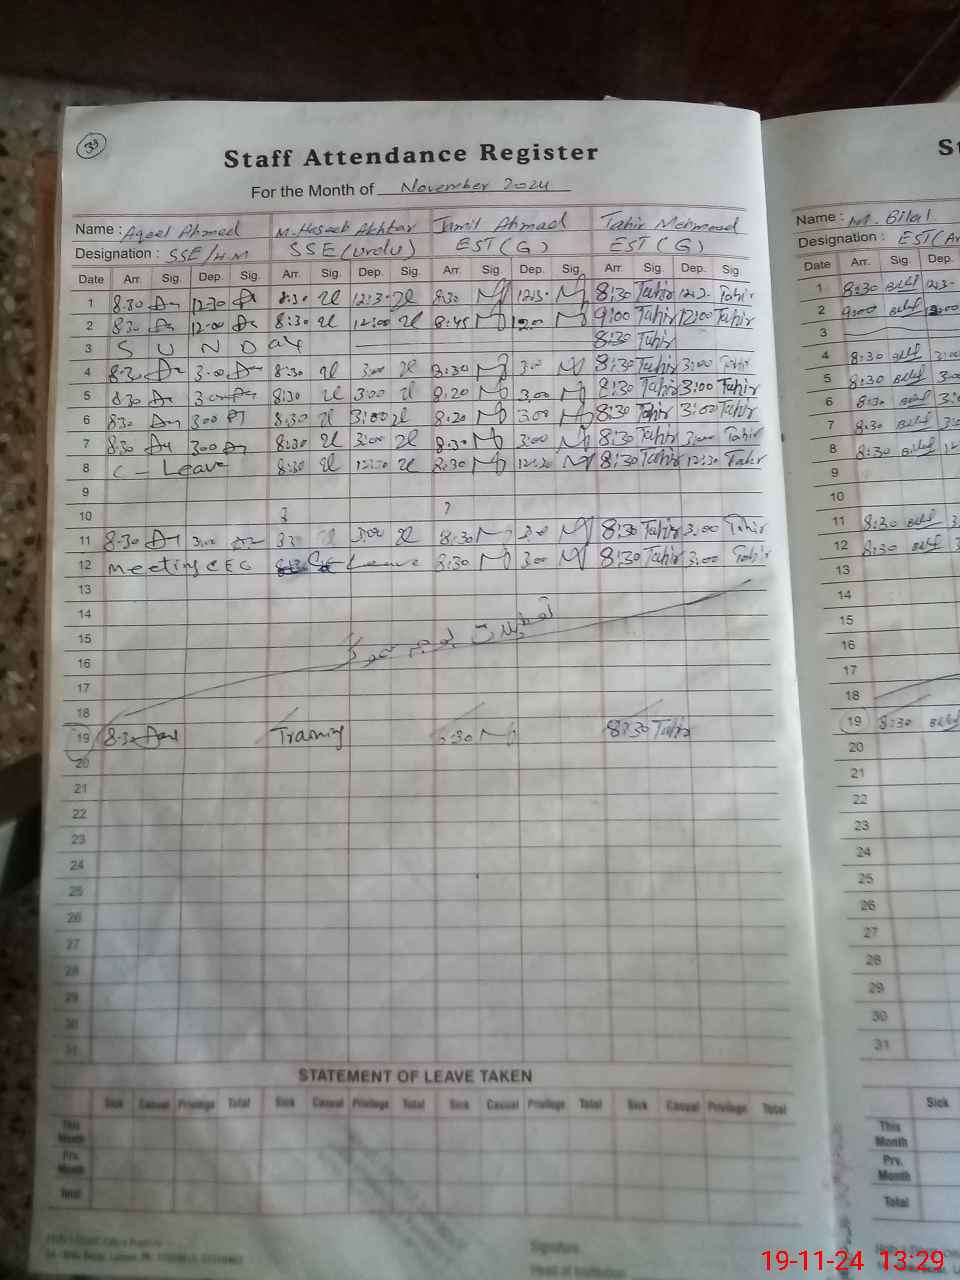 39
Staff Attendance Register
For the Month of November 2024
Name : Aqeel Ahmed M. Haseeb Akhtar Jamil Ahmad Tahir Mehmood
Designation : SSE/H.M SSE (Urdu) EST (G) EST (G)
Date Arr. Sig. Dep. Sig. Arr. Sig. Dep. Sig. Arr. Sig. Dep. Sig. Arr. Sig. Dep. Sig.
1 8:30 12:30 8:30 12:3 8:30 12:3 8:30 Tahir 12:3 Tahir
2 8:30 12:00 8:30 12:00 8:45 12:00 9:00 Tahir 12:00 Tahir
3 SUNDAY 8:30 Tahir
4 8:30 3:00 8:30 3:00 8:30 3:00 8:30 Tahir 3:00 Tahir
5 8:30 3:00 8:30 3:00 8:20 3:00 8:30 Tahir 3:00 Tahir
6 8:30 3:00 8:30 3:00 8:20 3:00 8:30 Tahir 3:00 Tahir
7 8:30 3:00 8:30 3:00 8:30 3:00 8:30 Tahir 3:00 Tahir
8 C - Leave 8:30 12:30 8:30 12:30 8:30 Tahir 12:30 Tahir
9
10
11 8:30 3:00 3:00 8:30 3:00 8:30 Tahir 3:00 Tahir
12 Meeting CEO Leave 8:30 3:00 8:30 Tahir 3:00 Tahir
13
14
15
16
17
18
19 8:30 Training 8:30 8:30 Tahir
20
21
22
23
24
25
26
27
28
29
30
31
STATEMENT OF LEAVE TAKEN
Sick Casual Privilege Total Sick Casual Privilege Total Sick Casual Privilege Total Sick Casual Privilege Total
This Month
Prv. Month
Total
Signature
Head of Institution
St
Name : M. Bilal
Designation : EST (Ar
Date Arr. Sig. Dep.
1 8:30 Bilal 12:3
2 9:00 Bilal 12:00
3
4 8:30 Bilal 3:00
5 8:30 Bilal 3:00
6 8:30 Bilal 3:0
7 8:30 Bilal 3:0
8 8:30 Bilal 12
9
10
11 8:30 Bilal 3
12 8:30 Bilal 3
13
14
15
16
17
18
19 8:30 Bilal
20
21
22
23
24
25
26
27
28
29
30
31
Sick
This Month
Prv. Month
Total
19-11-24 13:29